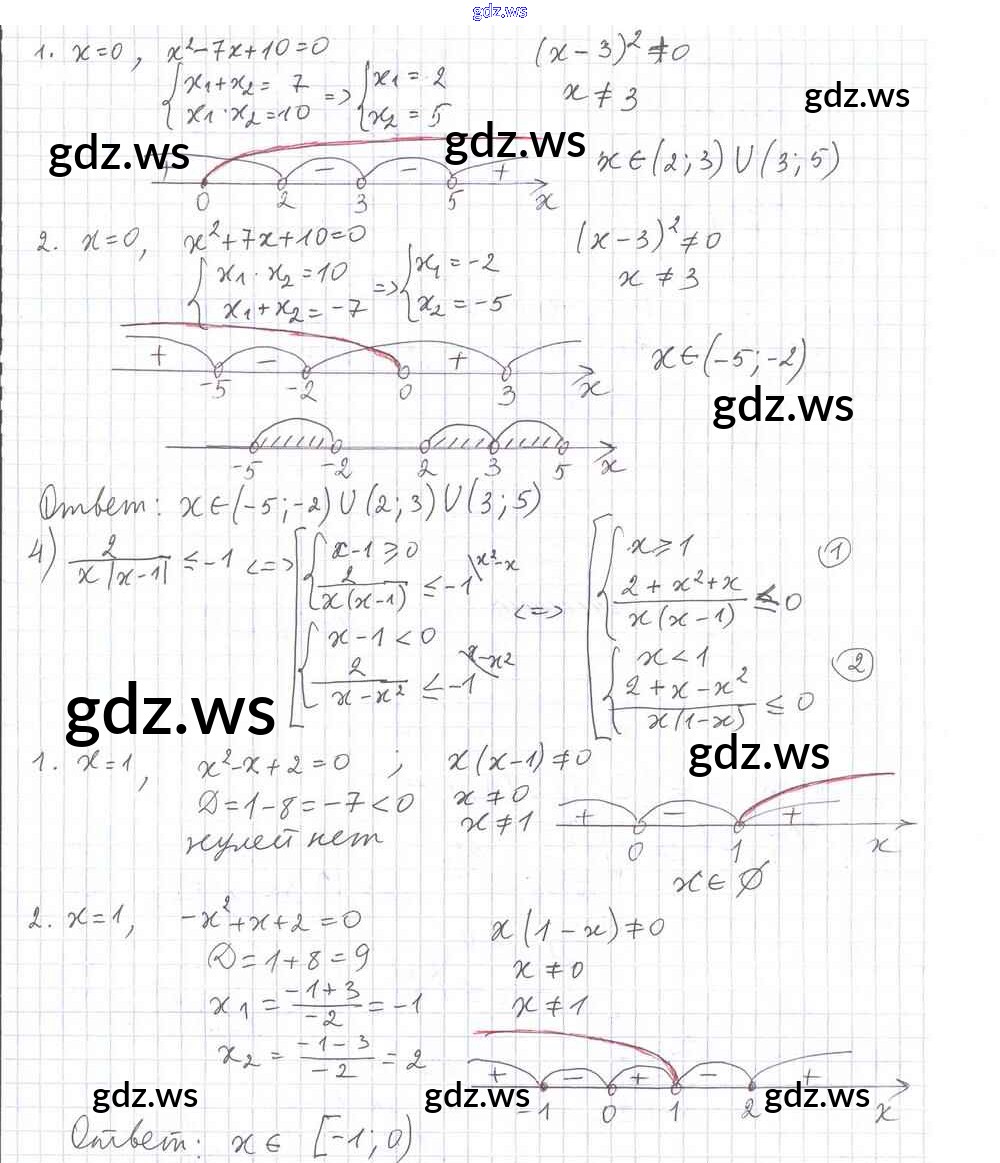 gdz.ws
1. x=0, x²-7x+10=0 (x-3)²≠0
{x₁+x₂=7 x₁·x₂=10 => {x₁=2 x₂=5 x≠3
gdz.ws
gdz.ws gdz.ws
x∈(2;3)∪(3;5)
+ - - +
0 2 3 5 x
2. x=0, x²+7x+10=0 (x-3)²≠0
{x₁·x₂=10 x₁+x₂=-7 => {x₁=-2 x₂=-5 x≠3
+ - + x∈(-5;-2)
-5 -2 0 3 x
gdz.ws
-5 -2 2 3 5 x
Ответ: x∈(-5;-2)∪(2;3)∪(3;5)
4) 2/(x|x-1|) ≤ -1 <=> [{x-1≥0 2/(x(x-1)) ≤ -1 \x²-x {x-1<0 2/(x-x²) ≤ -1 \x-x² <=> [{x≥1 (2+x²+x)/(x(x-1)) ≤ 0 (1) {x<1 (2+x-x²)/(x(1-x)) ≤ 0 (2)
gdz.ws
gdz.ws
1. x=1, x²-x+2=0; x(x-1)≠0
D=1-8=-7<0 x≠0
нулей нет x≠1
+ - +
0 1 x
x∈∅
2. x=1, -x²+x+2=0 x(1-x)≠0
D=1+8=9 x≠0
x₁=(-1+3)/-2=-1 x≠1
x₂=(-1-3)/-2=2
+ - + - +
-1 0 1 2 x
gdz.ws gdz.ws gdz.ws
Ответ: x∈[-1;0)